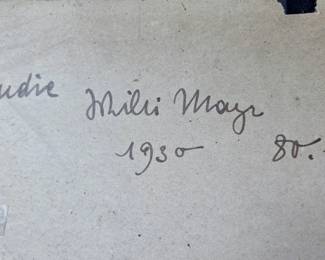 udie Willi Mayr
1930 80.-